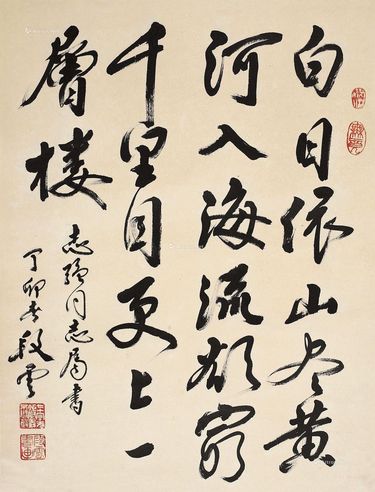 白日依山尽黄
河入海流欲穷
千里目更上一
层楼
志强同志属书
丁卯春段云